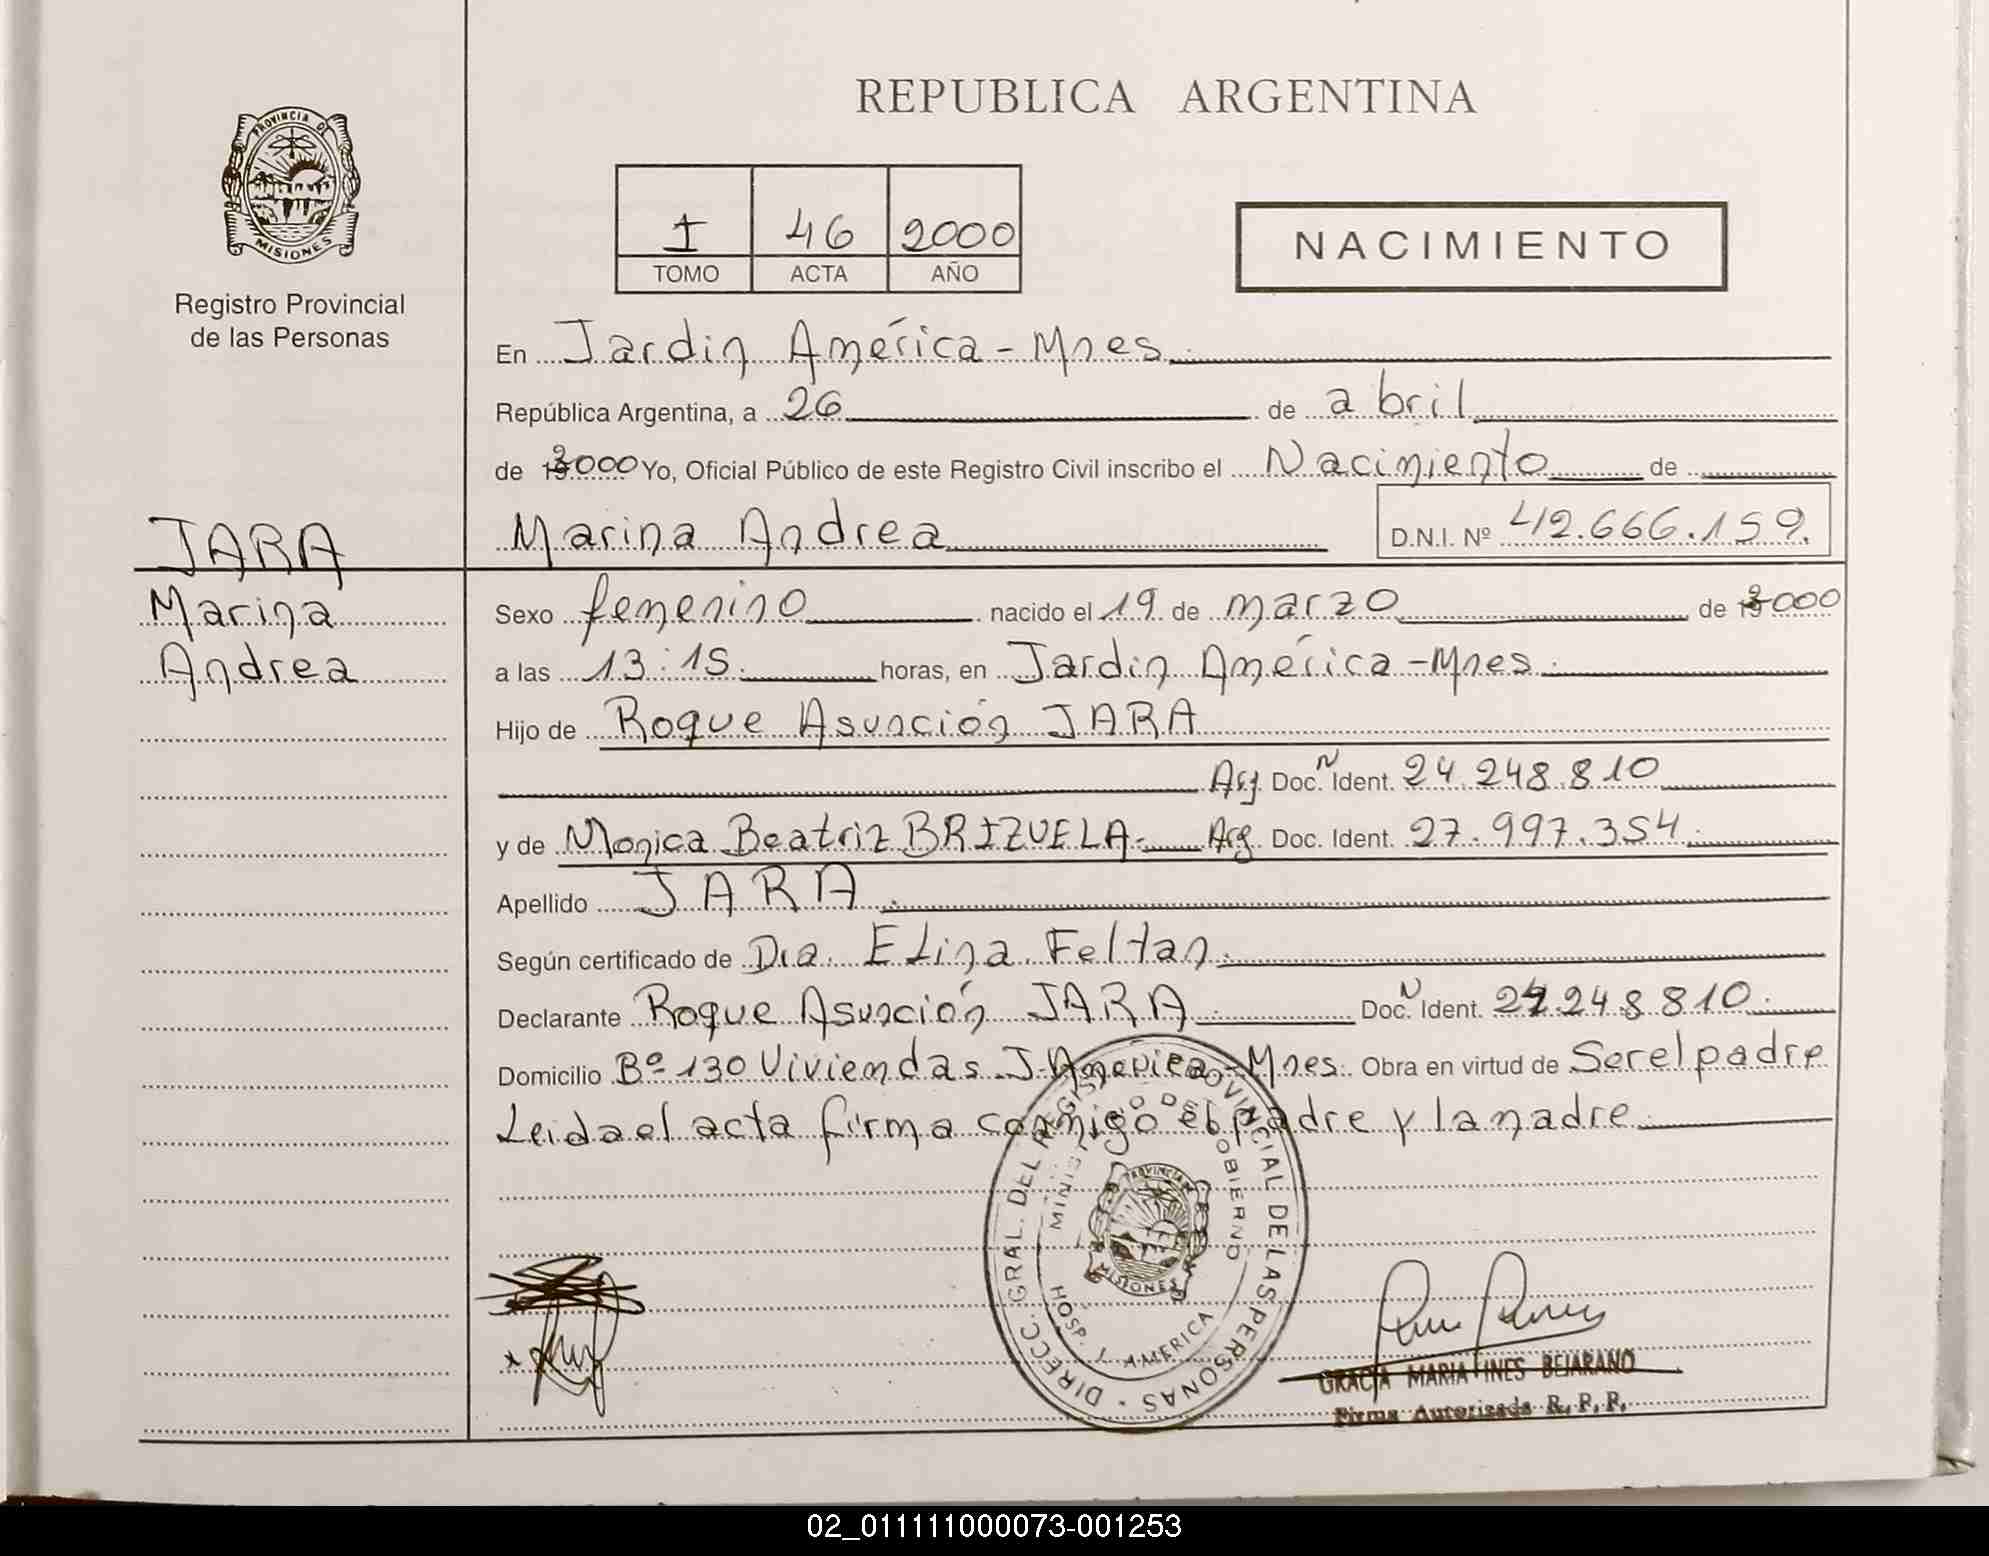 REPUBLICA ARGENTINA
PROVINCIA DE
MISIONES
Registro Provincial
de las Personas
I 46 2000
TOMO ACTA AÑO
NACIMIENTO
En Jardin América - Mnes.
República Argentina, a 26 de abril
de 2000 Yo, Oficial Público de este Registro Civil inscribo el Nacimiento de
Marina Andrea D.N.I. Nº 42.666.159.
JARA
Marina
Andrea
Sexo femenino nacido el 19 de marzo de 2000
a las 13:15. horas, en Jardin América - Mnes.
Hijo de Roque Asunción JARA
Arg. Doc. N Ident. 24.248.810
y de Monica Beatriz BRIZUELA. Arg. Doc. Ident. 27.997.354.
Apellido JARA.
Según certificado de Dra. Elina Feltan.
Declarante Roque Asunción JARA. Doc. N Ident. 24.248.810.
Domicilio Bº 130 Viviendas J. America - Mnes. Obra en virtud de Ser el padre
Leida el acta firma conmigo el padre y la madre.
DIRECC. GRAL. DEL REGISTRO PROVINCIAL DE LAS PERSONAS
MINISTERIO DE GOBIERNO
PROVINCIA
MISIONES
HOSP. J. AMERICA
GRACIA MARIA INES BEJARANO
Firma Autorizada R. P. P.
02_011111000073-001253